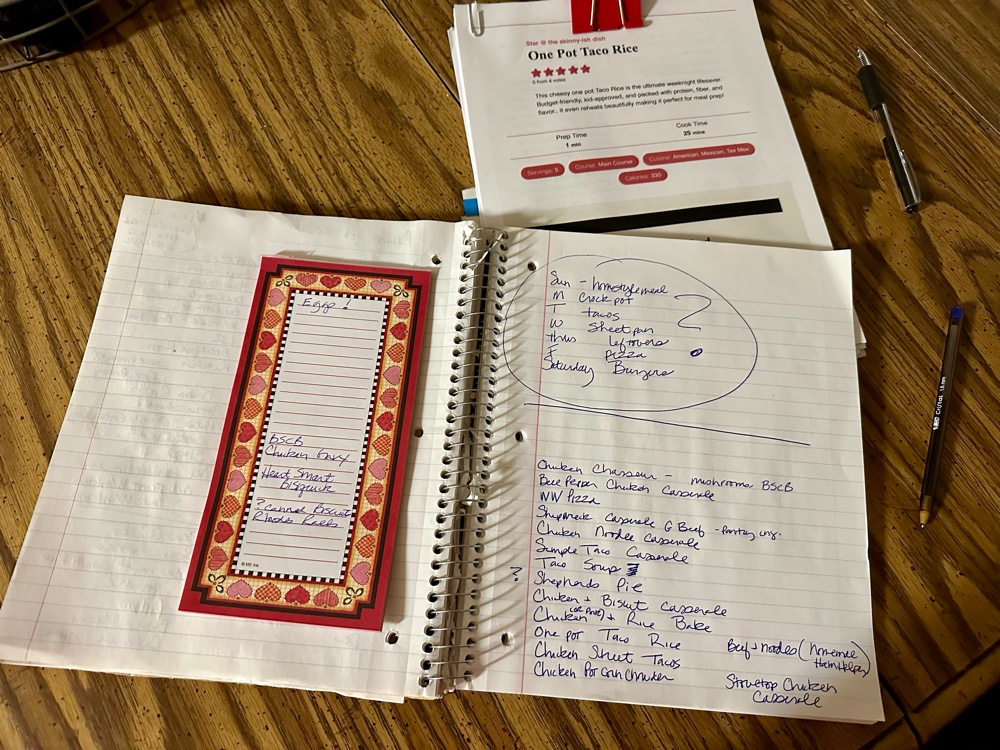 Star @ the skinny-ish dish
One Pot Taco Rice
5 from 4 votes
This cheesy one pot Taco Rice is the ultimate weeknight lifesaver.
Budget-friendly, kid-approved, and packed with protein, fiber, and
flavor.. it even reheats beautifully making it perfect for meal prep!
Prep Time
1 min
Cook Time
25 mins
Servings: 5
Course: Main Course
Cuisine: American, Mexican, Tex Mex
Calories: 330
Eggs!
BSCB
Chicken Gravy
Heart Smart
Bisquick
? Canned Biscuit
Rhodes Rolls
Sun - homestyle meal
M Crock pot
T tacos
W Sheet pan
thurs leftovers
F Pizza
Saturday Burgers
?
Chicken Chasseur - mushrooms BSCB
Bell Pepper Chicken Casserole
WW Pizza
Shipwreck Casserole G Beef - pantry ing.
Chicken Noodle Casserole
Simple Taco Casserole
Taco Soup
? Shepherds Pie
Chicken + Biscuit Casserole
Chicken (or Pork) + Rice Bake
One pot Taco Rice
Chicken Sheet Tacos
Chicken Pot Corn Chowder
Beef + noodles (homemade
HamHelper)
Stovetop Chicken
Casserole
BIC Cristal